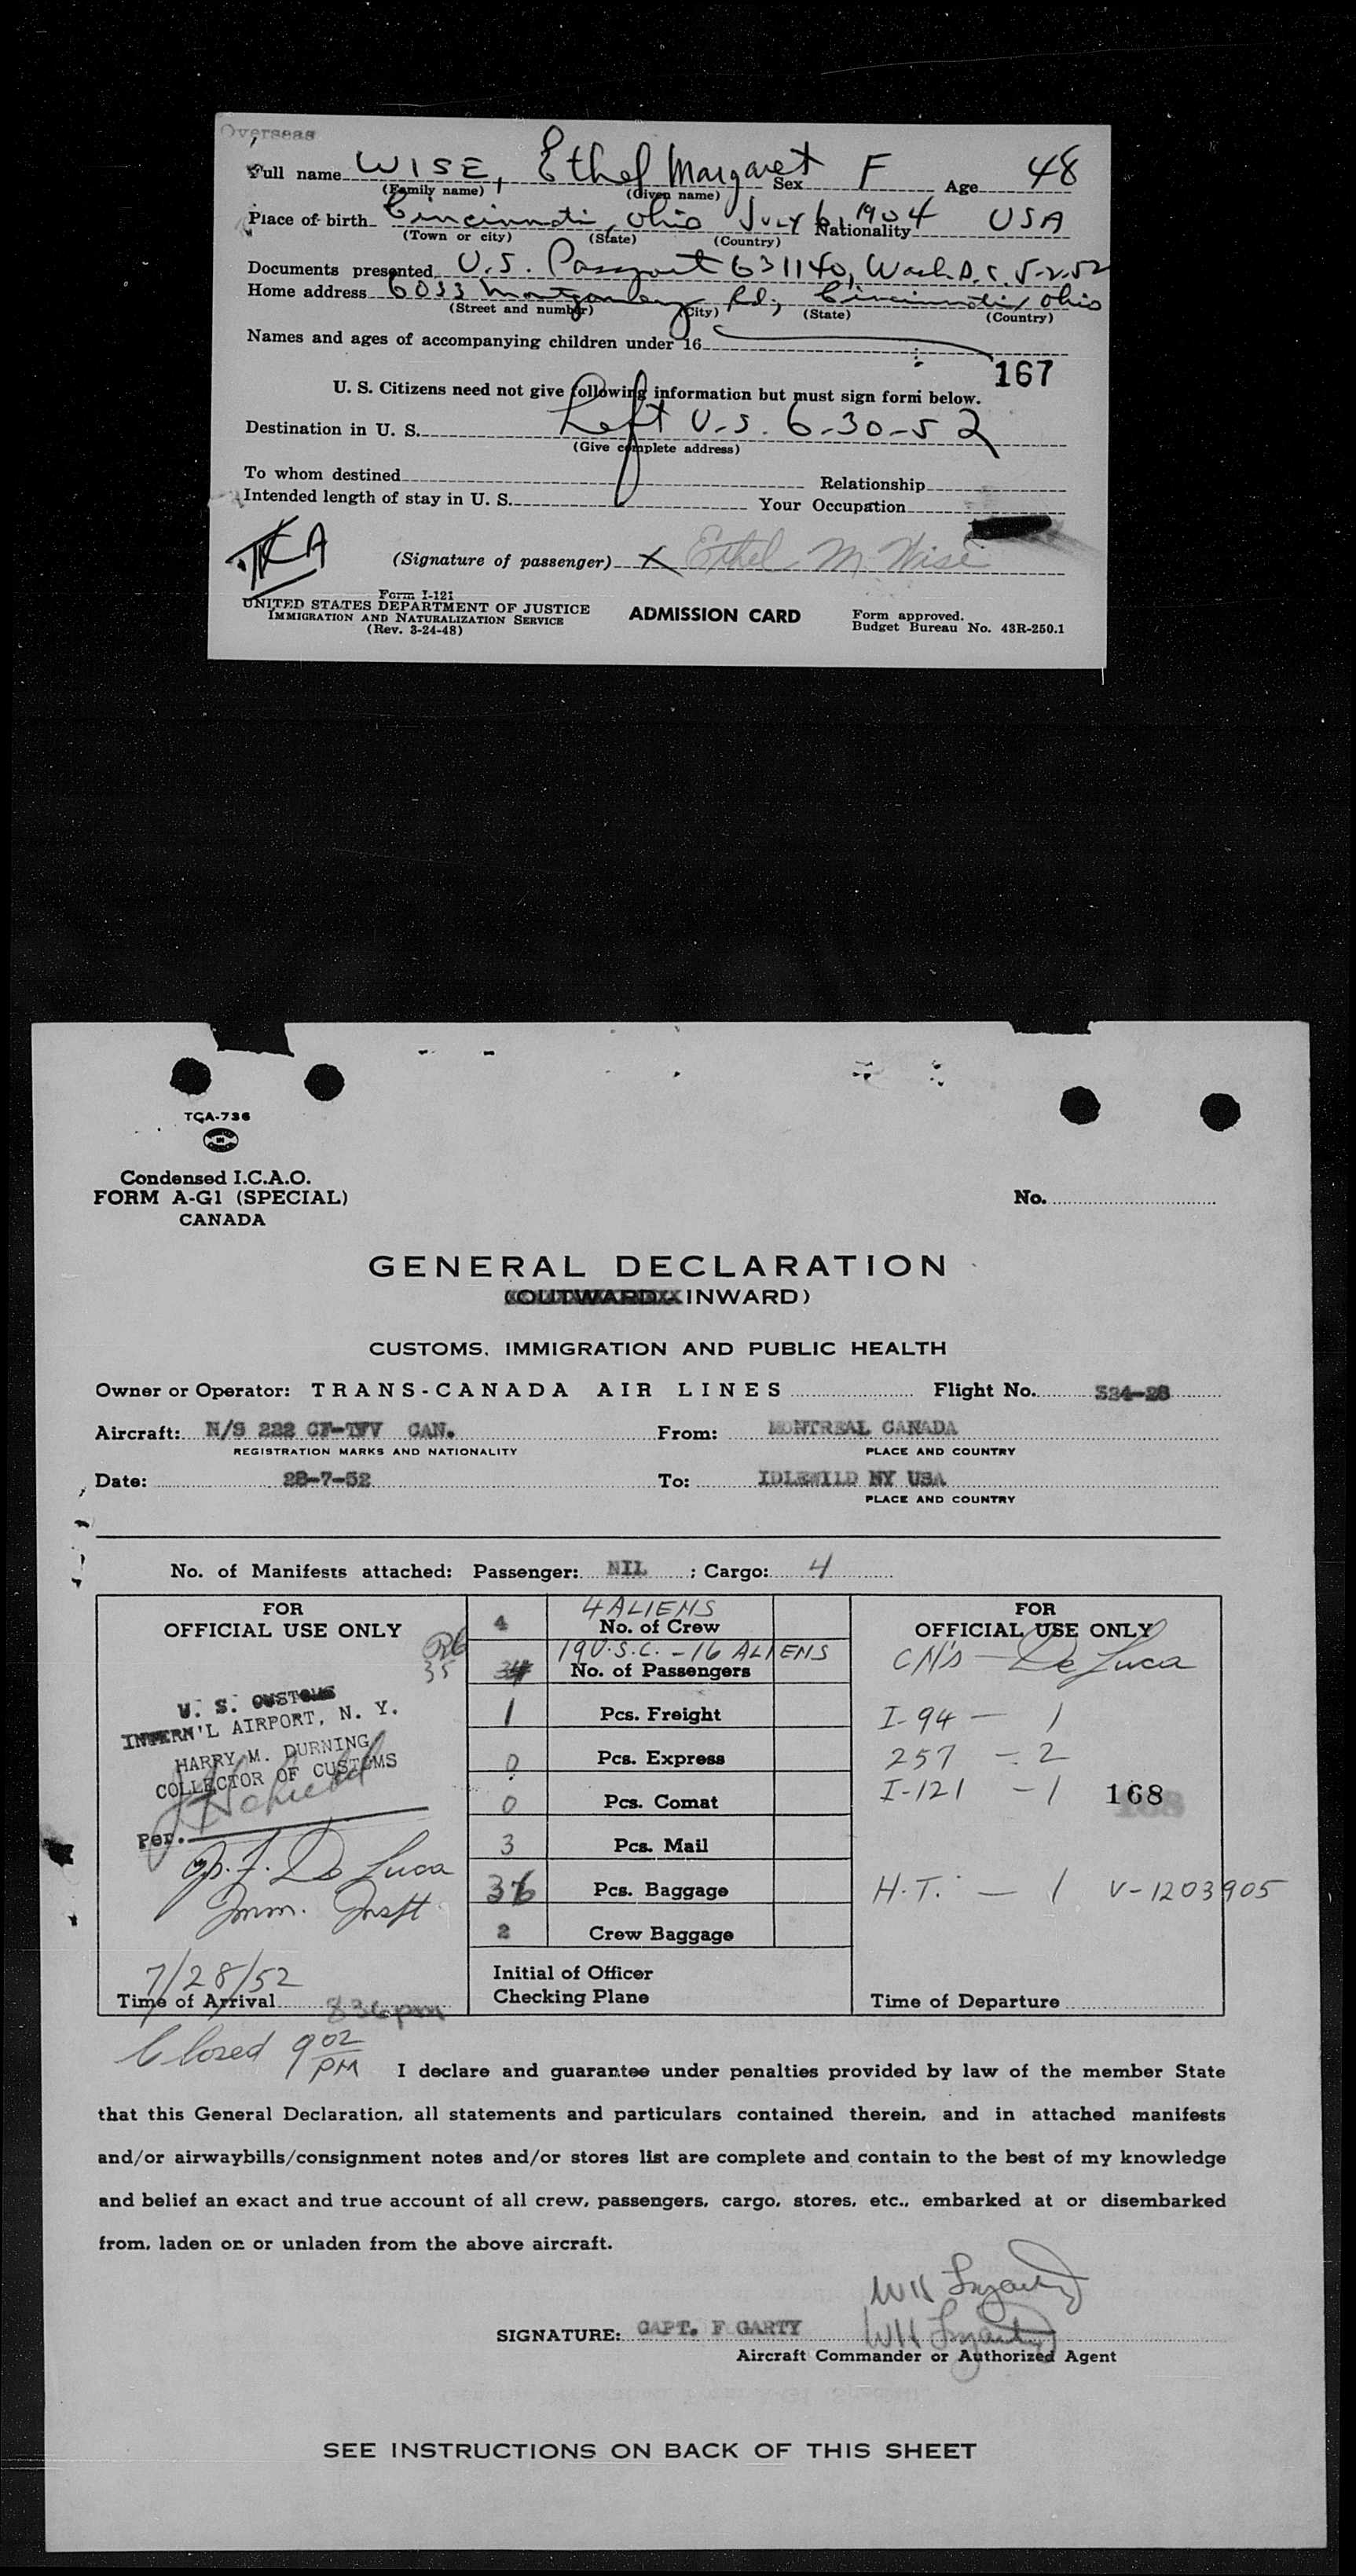 Overseas
Full name WISE, Ethel Margaret Sex F Age 48
(Family name) (Given name)
Place of birth Cincinnati, Ohio July 6, 1904 Nationality USA
(Town or city) (State) (Country)
Documents presented U.S. Passport 631140, Wash. D.C. 5-2-52
Home address 6033 Montgomery Rd, Cincinnati, Ohio
(Street and number) (City) (State) (Country)
Names and ages of accompanying children under 16
167
U. S. Citizens need not give following information but must sign form below.
Destination in U. S. Left U.S. 6-30-52
(Give complete address)
To whom destined Relationship
Intended length of stay in U. S. Your Occupation
TCA
(Signature of passenger) X Ethel M Wise
Form I-121
UNITED STATES DEPARTMENT OF JUSTICE
IMMIGRATION AND NATURALIZATION SERVICE
(Rev. 3-24-48)
ADMISSION CARD
Form approved.
Budget Bureau No. 43R-250.1
TCA-736
Condensed I.C.A.O.
FORM A-G1 (SPECIAL)
CANADA
No.
GENERAL DECLARATION
(OUTWARD INWARD)
CUSTOMS, IMMIGRATION AND PUBLIC HEALTH
Owner or Operator: TRANS-CANADA AIR LINES Flight No. 524-28
Aircraft: N/S 222 CF-TFV CAN. From: MONTREAL CANADA
REGISTRATION MARKS AND NATIONALITY PLACE AND COUNTRY
Date: 28-7-52 To: IDLEWILD NY USA
PLACE AND COUNTRY
No. of Manifests attached: Passenger: NIL ; Cargo: 4
FOR
OFFICIAL USE ONLY
35
U. S. CUSTOMS
INTERN'L AIRPORT, N. Y.
HARRY M. DURNING
COLLECTOR OF CUSTOMS
Per.
De Luca
Imm. Inspt.
7/28/52
Time of Arrival 836pm
Closed 9 02 PM
4 4 ALIENS
No. of Crew
34 19 U.S.C. - 16 ALIENS
No. of Passengers
1 Pcs. Freight
0 Pcs. Express
0 Pcs. Comat
3 Pcs. Mail
36 Pcs. Baggage
2 Crew Baggage
Initial of Officer
Checking Plane
FOR
OFFICIAL USE ONLY
CN's - De Luca
I-94 - 1
257 - 2
I-121 - 1 168
H.T. - 1 V-1203905
Time of Departure
I declare and guarantee under penalties provided by law of the member State
that this General Declaration, all statements and particulars contained therein, and in attached manifests
and/or airwaybills/consignment notes and/or stores list are complete and contain to the best of my knowledge
and belief an exact and true account of all crew, passengers, cargo, stores, etc., embarked at or disembarked
from, laden on or unladen from the above aircraft.
SIGNATURE: CAPT. F GARTY
Aircraft Commander or Authorized Agent
SEE INSTRUCTIONS ON BACK OF THIS SHEET